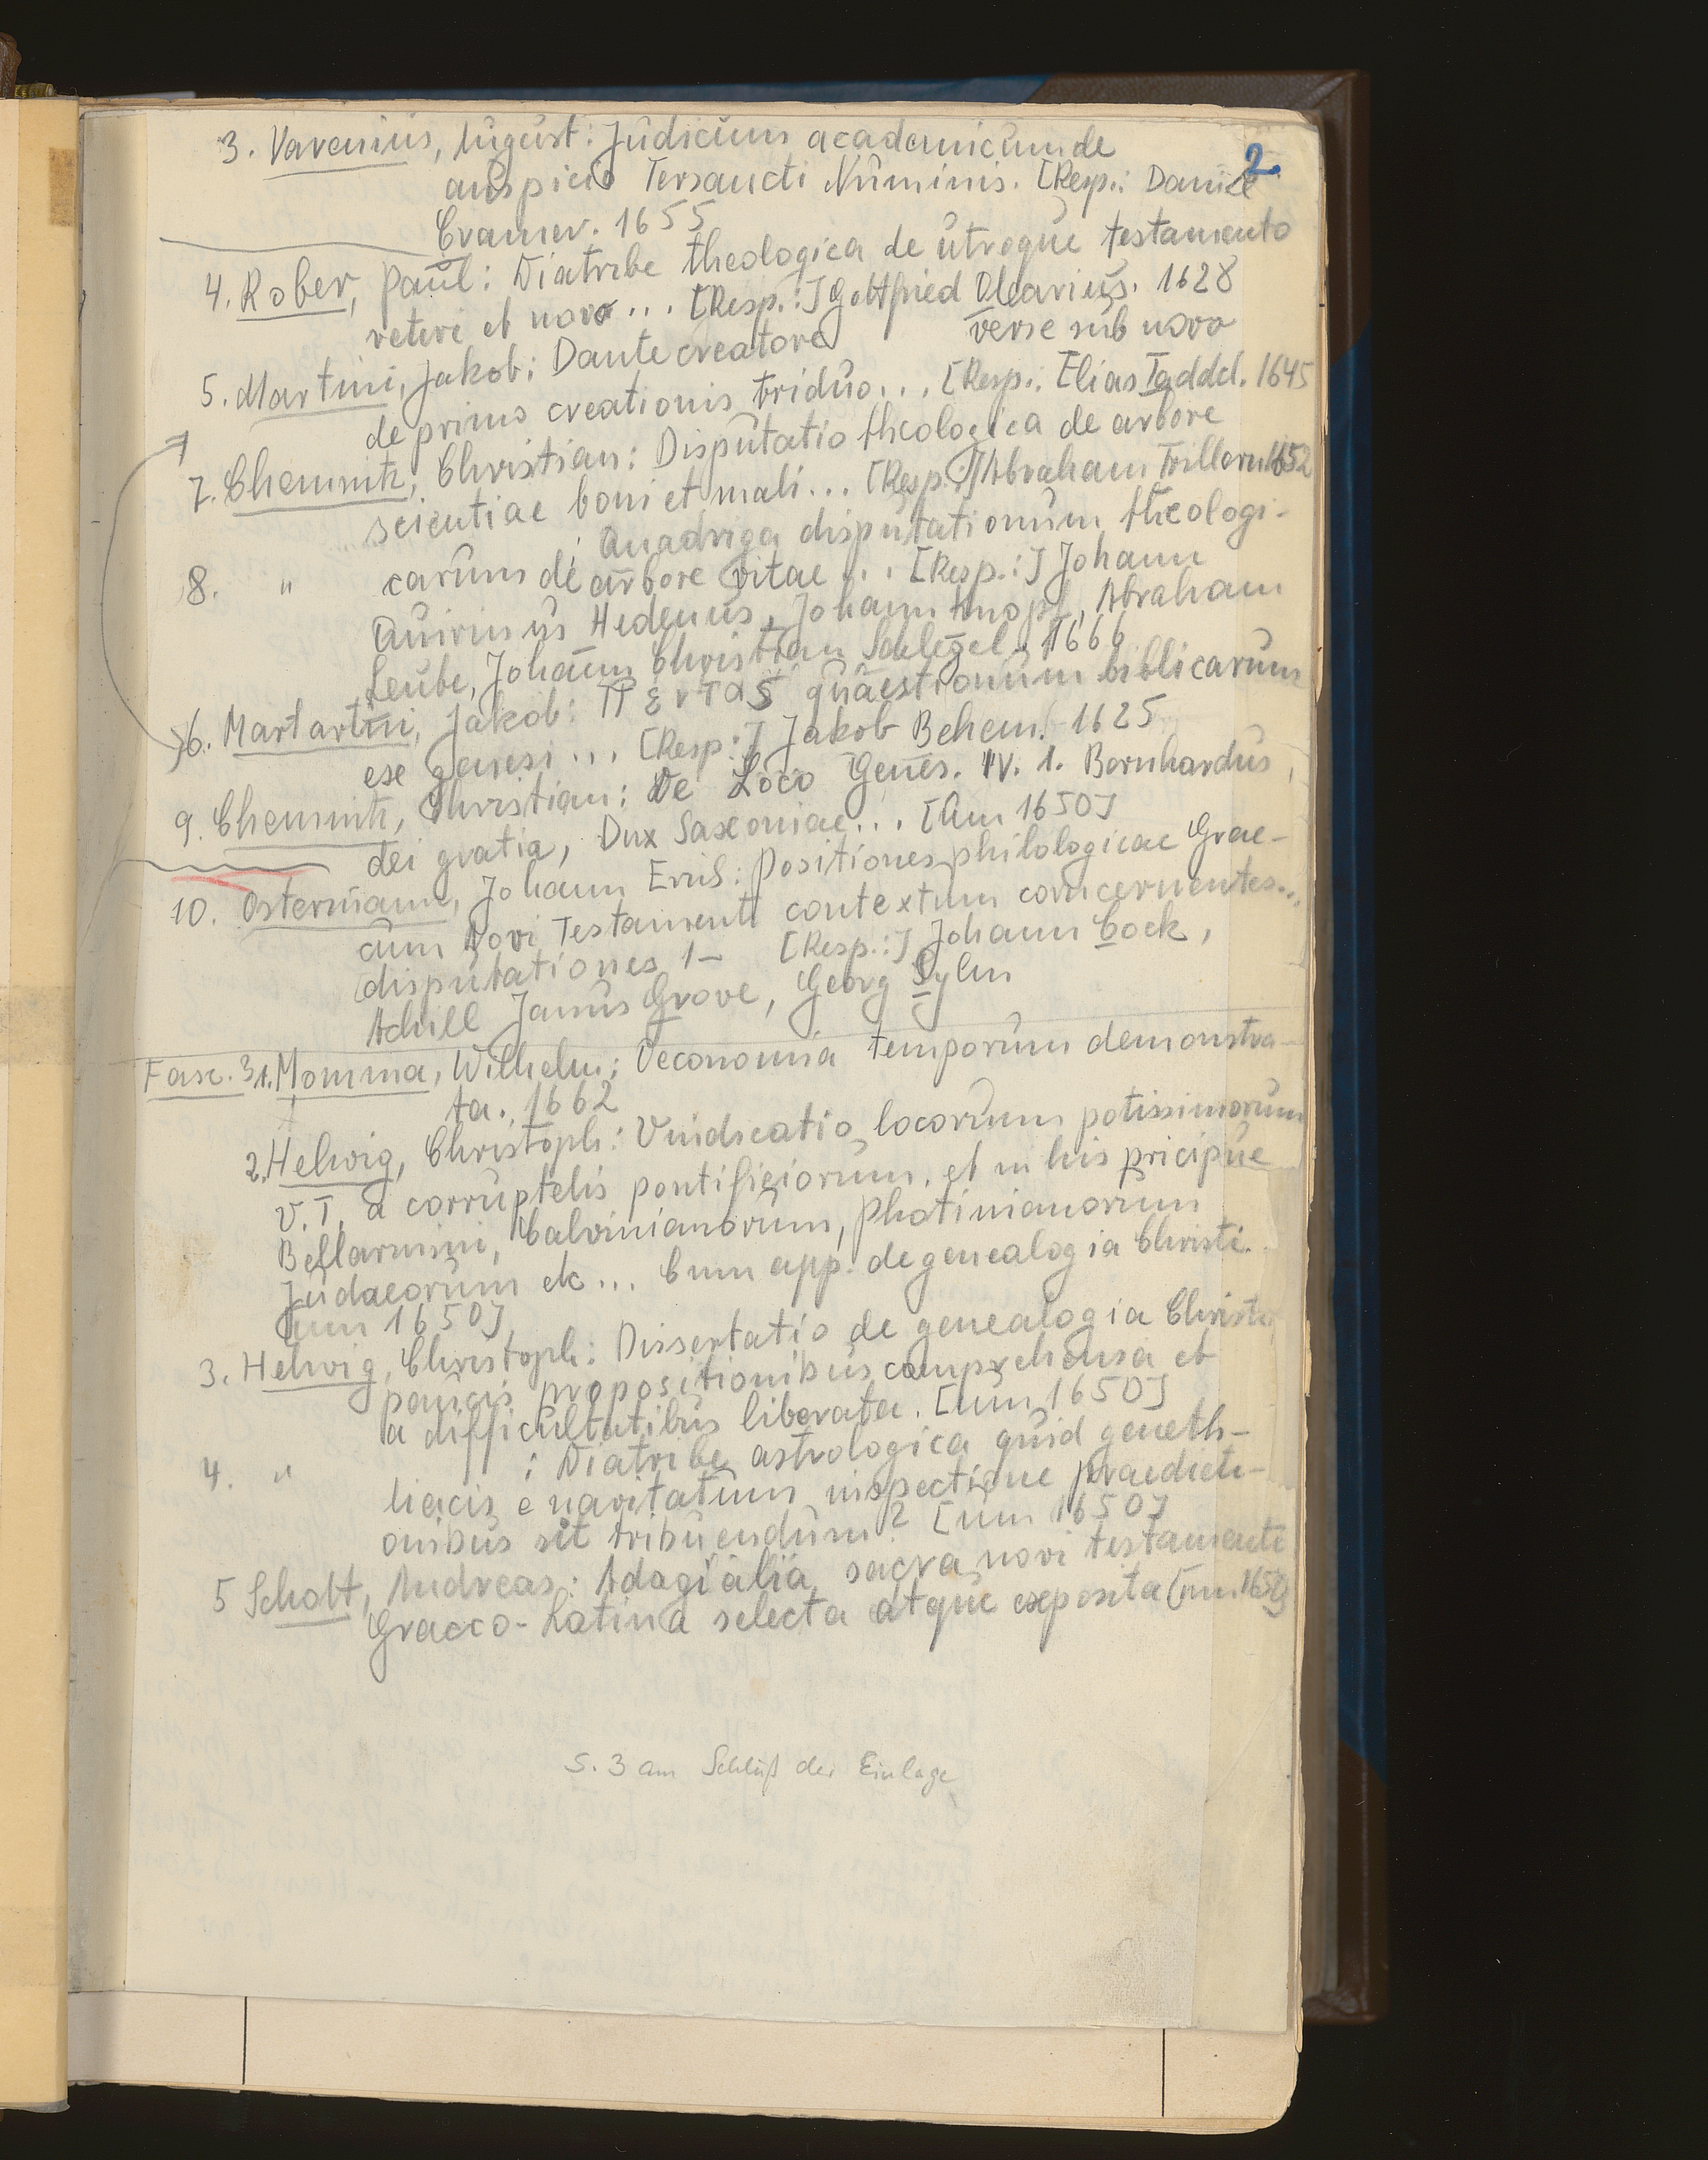 2
3. Varenius, August: Judicium academicum de
auspicio Tersancti Numinis. [Resp.: Daniel
Cramer. 1655
4. Rober, Paul: Diatribe theologica de utroque testamento
veteri et novo... [Resp.:] Gottfried Olearius. 1628
verse sub novo
5. Martini, Jakob: Dante creatore
de primo creationis triduo... [Resp.: Elias Taddel. 1645
7. Chemnitz, Christian: Disputatio theologica de arbore
scientiae boni et mali... [Resp.:] Abraham Trillern 1652
8. " : Quadriga disputationum theologi-
carum de arbore vitae... [Resp.:] Johann
Quirinus Hedenus, Johann Knopf, Abraham
Leube, Johann Christian Schlegel. 1666
6. Martartini, Jakob: Πεντας quaestionum biblicarum
ese genesi... [Resp.:] Jakob Behem. 1625
9. Chemnitz, Christian: De Loco Genes. IV. 1. Bernhardus,
dei gratia, Dux Saxoniae... [Um 1650]
10. Ostermann, Johann Erich: Positiones philologicae Grae-
cum Novi Testamenti contextum concernentes...
disputationes 1- [Resp.:] Johann Cock,
Achill Janus Grove, Georg Sylm
Fasc. 3 1. Momma, Wilhelm: Oeconomia temporum demonstra-
ta. 1662
2. Helwig, Christoph: Vindicatio locorum potissimorum
V.T. a corruptelis pontificiorum, et in his pricipue
Bellarmini, Calvinianorum, Photinianorum
Judaeorum etc... Cum app. de genealogia Christi.
[um 1650]
3. Helwig, Christoph: Dissertatio de genealogia Christi,
paucis propositionibus comprehensa et
a difficultatibus liberata. [um 1650]
4. " : Diatribe astrologica quid geneth-
liacis e navitatum inspectione praedicti-
onibus sit tribuendum? [um 1650]
5 Schott, Andreas: Adagialia sacra novi testamenti
Graeco-Latina selecta atque exposita [um 1650]
S. 3 am Schluß der Einlage